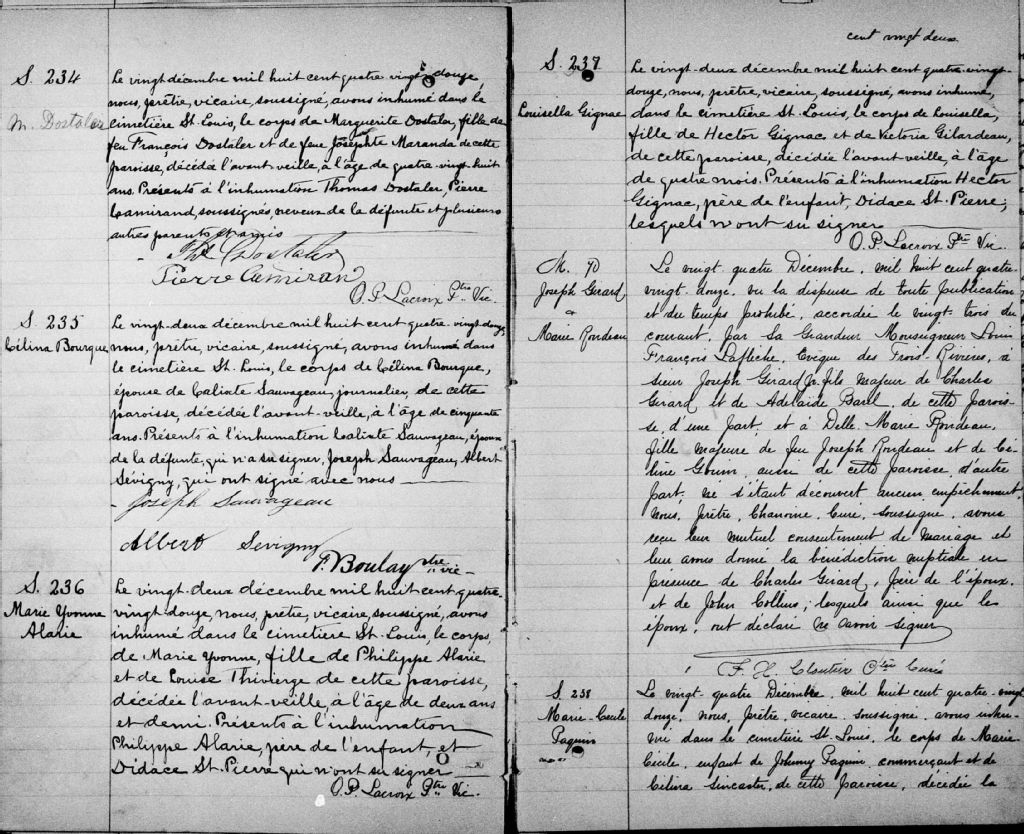 S. 234
M. Dostaler
Le vingt décembre mil huit cent quatre-vingt-douze
nous, prêtre, vicaire, soussigné, avons inhumé dans le
cimetière St. Louis, le corps de Marguerite Dostaler, fille de
feu François Dostaler et de feue Josephte Maranda de cette
paroisse, décédée l'avant-veille, à l'âge de quatre-vingt-huit
ans. Présents à l'inhumation Thomas Dostaler, Pierre
Lamirand, soussignés, neveux de la défunte et plusieurs
autres parents et amis
Ths Dostaler
Pierre Camirand
O. P. Lacroix Ptre Vic.
S. 235
Célina Bourque
Le vingt-deux décembre mil huit cent quatre-vingt-douze,
nous, prêtre, vicaire, soussigné, avons inhumé dans
le cimetière St. Louis, le corps de Célina Bourque,
épouse de Calixte Sauvageau, journalier, de cette
paroisse, décédée l'avant-veille, à l'âge de cinquante
ans. Présents à l'inhumation Calixte Sauvageau, époux
de la défunte, qui n'a su signer, Joseph Sauvageau, Albert
Sévigny, qui ont signé avec nous
Joseph Sauvageau
Albert Sevigny
T. Boulay ptre vic
S. 236
Marie Yvonne
Alarie
Le vingt-deux décembre mil huit cent quatre-
vingt-douze, nous, prêtre, vicaire, soussigné, avons
inhumé dans le cimetière St. Louis, le corps,
de Marie Yvonne, fille de Philippe Alarie
et de Louise Thivierge de cette paroisse,
décédée l'avant-veille, à l'âge de deux ans
et demi. Présents à l'inhumation
Philippe Alarie, père de l'enfant, et
Didace St. Pierre qui n'ont su signer
O. P. Lacroix Ptre Vic.
cent vingt deux
S. 237
Louisella Gignac
Le vingt-deux décembre mil huit cent quatre-vingt-
douze, nous, prêtre, vicaire, soussigné, avons inhumé,
dans le cimetière St. Louis, le corps de Louisella,
fille de Hector Gignac et de Victoria Gilardeau,
de cette paroisse, décédée l'avant-veille, à l'âge
de quatre mois. Présents à l'inhumation Hector
Gignac, père de l'enfant, Didace St. Pierre,
lesquels n'ont su signer
O. P. Lacroix Ptre Vic.
M. 70
Joseph Girard
&
Marie Rondeau
Le vingt quatre Décembre, mil huit cent quatre-
vingt-douze, vu la dispense de toute publication
et du temps prohibé, accordée le vingt-trois du
courant, par Sa Grandeur Monseigneur Louis
François Lafleche, Evêque des Trois-Rivières, à
sieur Joseph Girard Jr. fils majeur de Charles
Girard et de Adelaïde Baril, de cette parois-
se, d'une part, et à Delle Marie Rondeau,
fille majeure de feu Joseph Rondeau et de Cé-
lina Gouin, aussi de cette paroisse, d'autre
part, ne s'étant découvert aucun empêchement,
nous, prêtre, Chanoine, Curé, soussigné, avons
reçu leur mutuel consentement de mariage et
leur avons donné la bénédiction nuptiale en
présence de Charles Girard, père de l'époux,
et de John Collins; lesquels ainsi que les
époux, ont déclaré ne savoir signer
F. X. Cloutier Ctre Curé
S. 238
Marie-Cecile
Paquin
Le vingt-quatre Décembre, mil huit cent quatre-vingt
douze, nous, prêtre, vicaire, soussigné, avons inhu-
mé dans le cimetière St. Louis, le corps de Marie
Cecile, enfant de Johnny Paquin, commerçant et de
Célina, de cette paroisse, décédée la